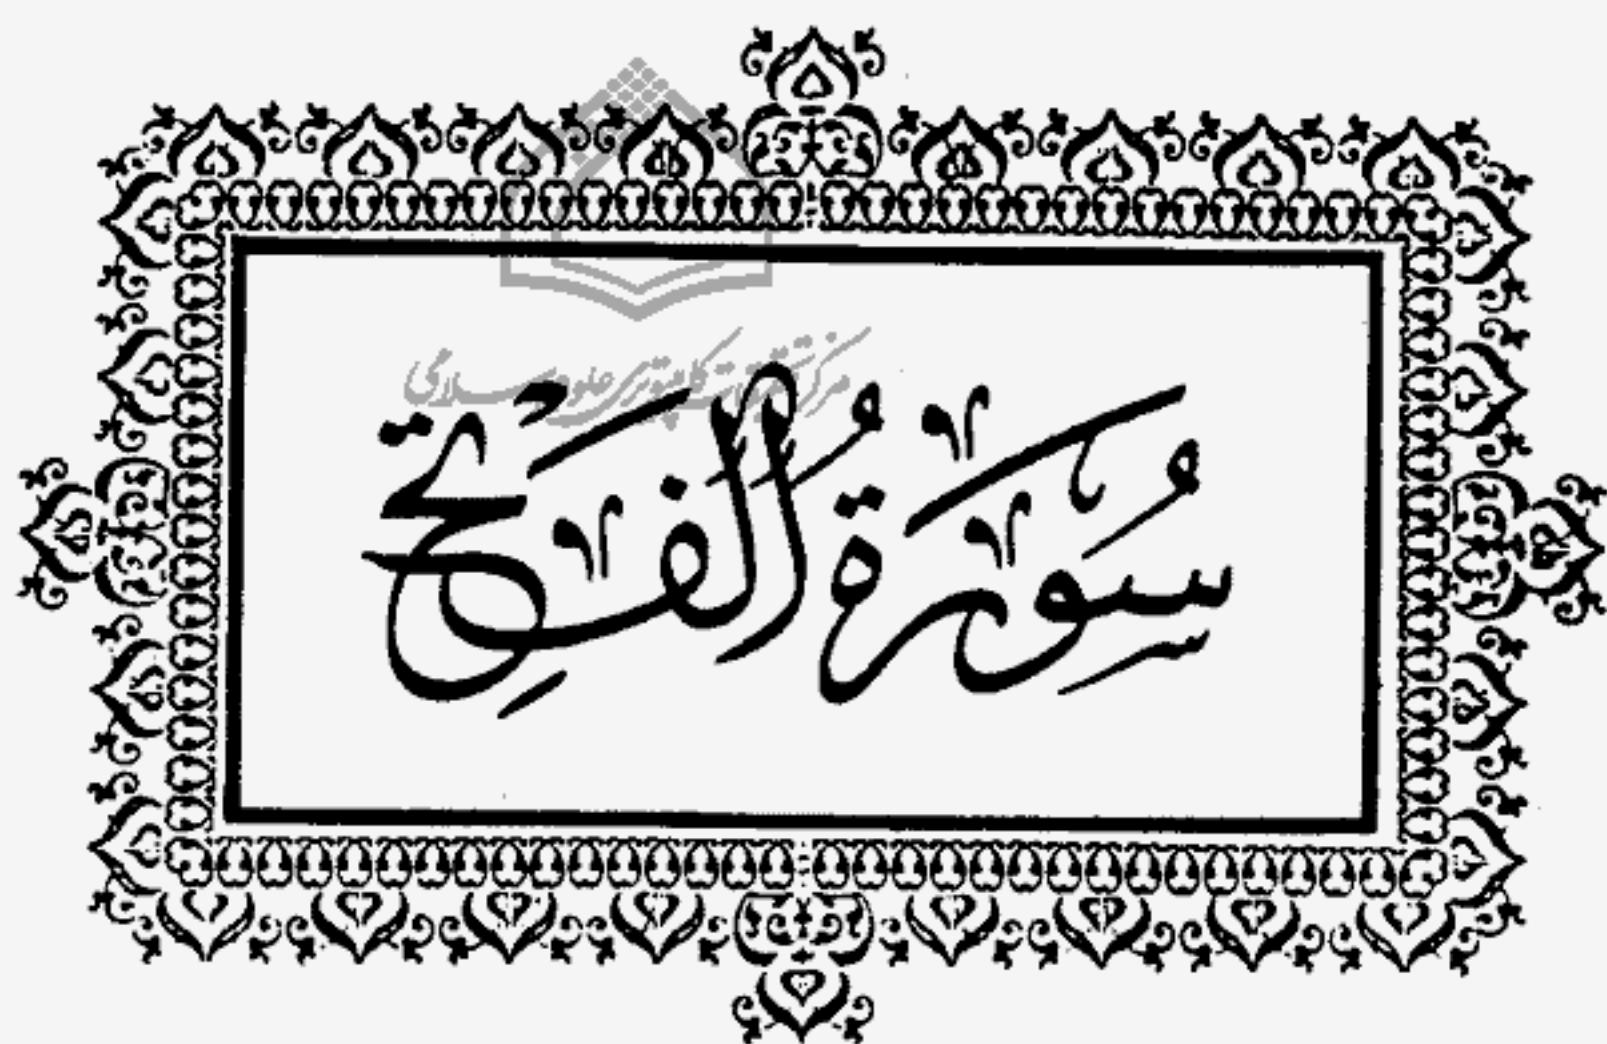 مرکز تحقیقات کامپیوتری علوم اسلامی
سُورَةُ الفَتْحِ